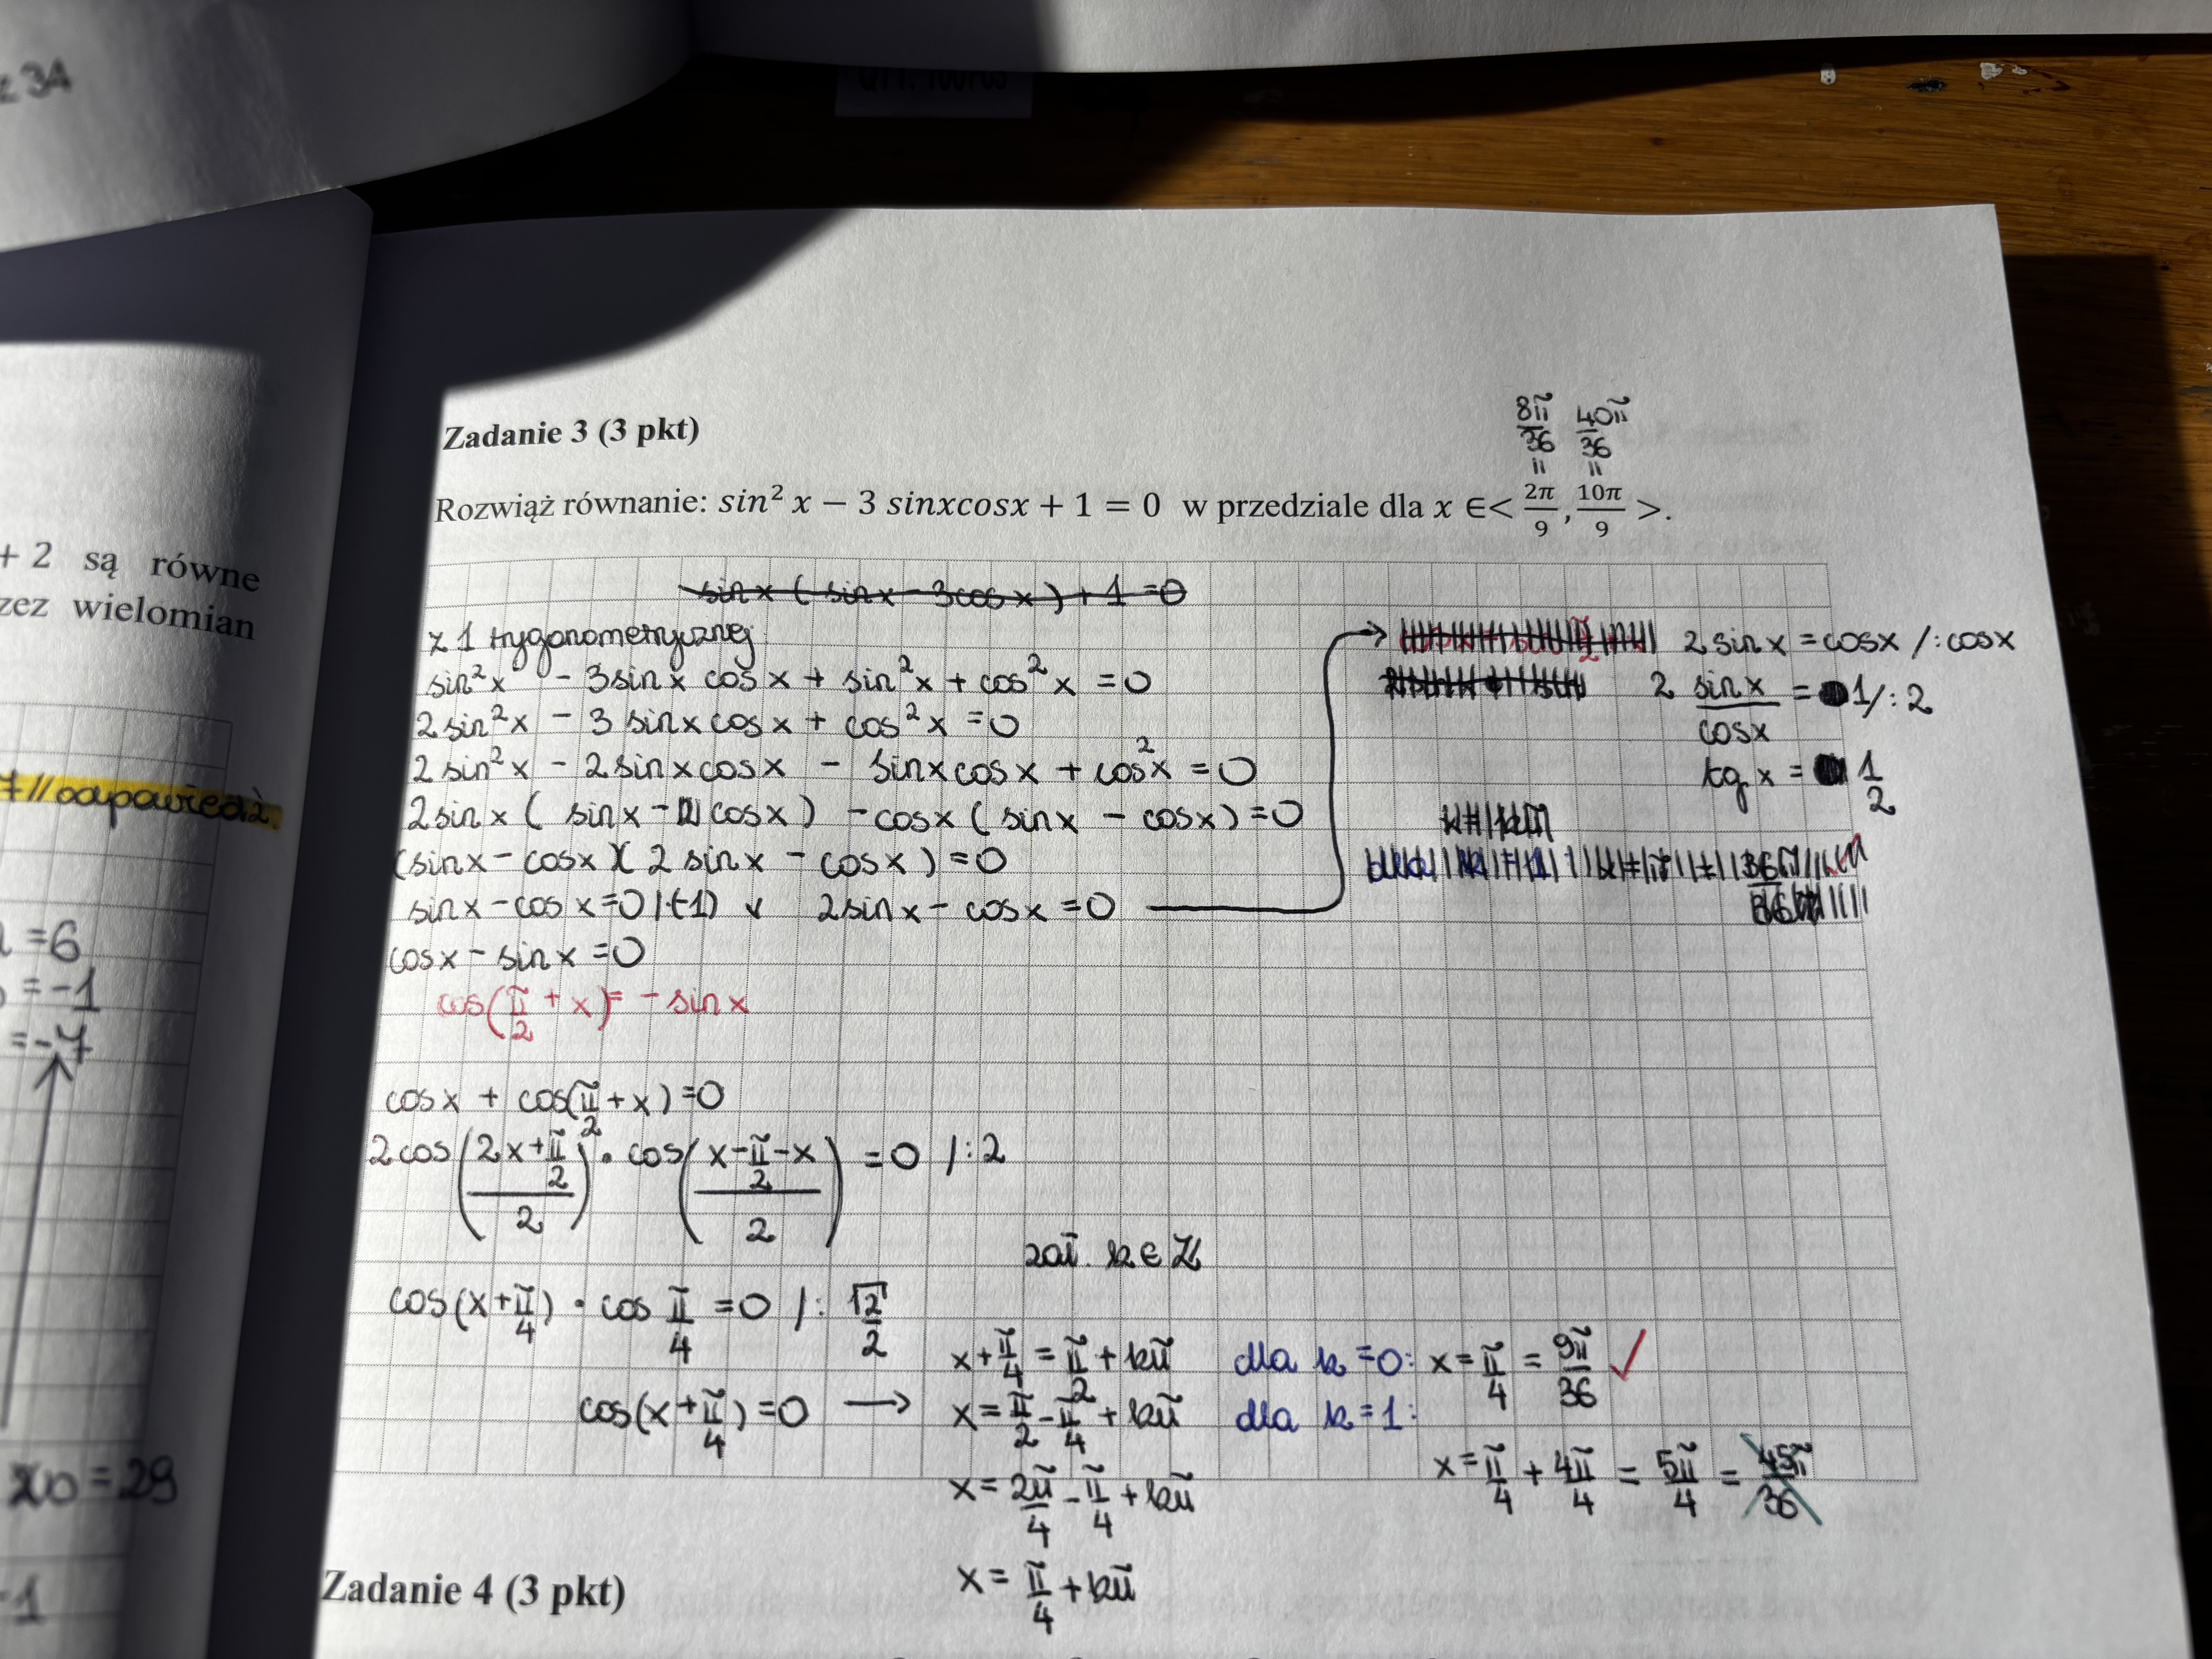 z 34
QTY: 100PCS
+ 2 są równe
zez wielomian
7 // odpowiedź.
= 6
= -1
= -7
x0 = 29
-1
Zadanie 3 (3 pkt)
8π/36 40π/36
= =
Rozwiąż równanie: sin² x − 3 sinxcosx + 1 = 0 w przedziale dla x ∈< 2π/9 , 10π/9 >.
sinx ( sinx - 3cosx ) + 1 = 0
z 1 trygonometrycznej:
sin²x - 3sinx cosx + sin²x + cos²x = 0
2sin²x - 3 sinxcosx + cos²x = 0
2 sin²x - 2sinxcosx - sinxcosx + cos²x = 0
2sinx ( sinx - cosx ) - cosx ( sinx - cosx ) = 0
(sinx - cosx)( 2 sinx - cosx ) = 0
sinx - cosx = 0 /·(-1) v 2sinx - cosx = 0 →
cosx - sinx = 0
cos(π/2 + x) = - sinx
cosx + cos(π/2 + x) = 0
2cos((2x + π/2)/2) · cos((x - π/2 - x)/2) = 0 /:2
cos(x + π/4) · cos π/4 = 0 /: √2/2
cos(x + π/4) = 0 →
2 sinx = cosx /: cosx
2 sinx/cosx = 1 /: 2
tg x = 1/2
zał. k ∈ Z
x + π/4 = π/2 + kπ
x = π/2 - π/4 + kπ
x = 2π/4 - π/4 + kπ
x = π/4 + kπ
dla k = 0: x = π/4 = 9π/36 ✓
dla k = 1:
x = π/4 + 4π/4 = 5π/4 = 45π/36
Zadanie 4 (3 pkt)